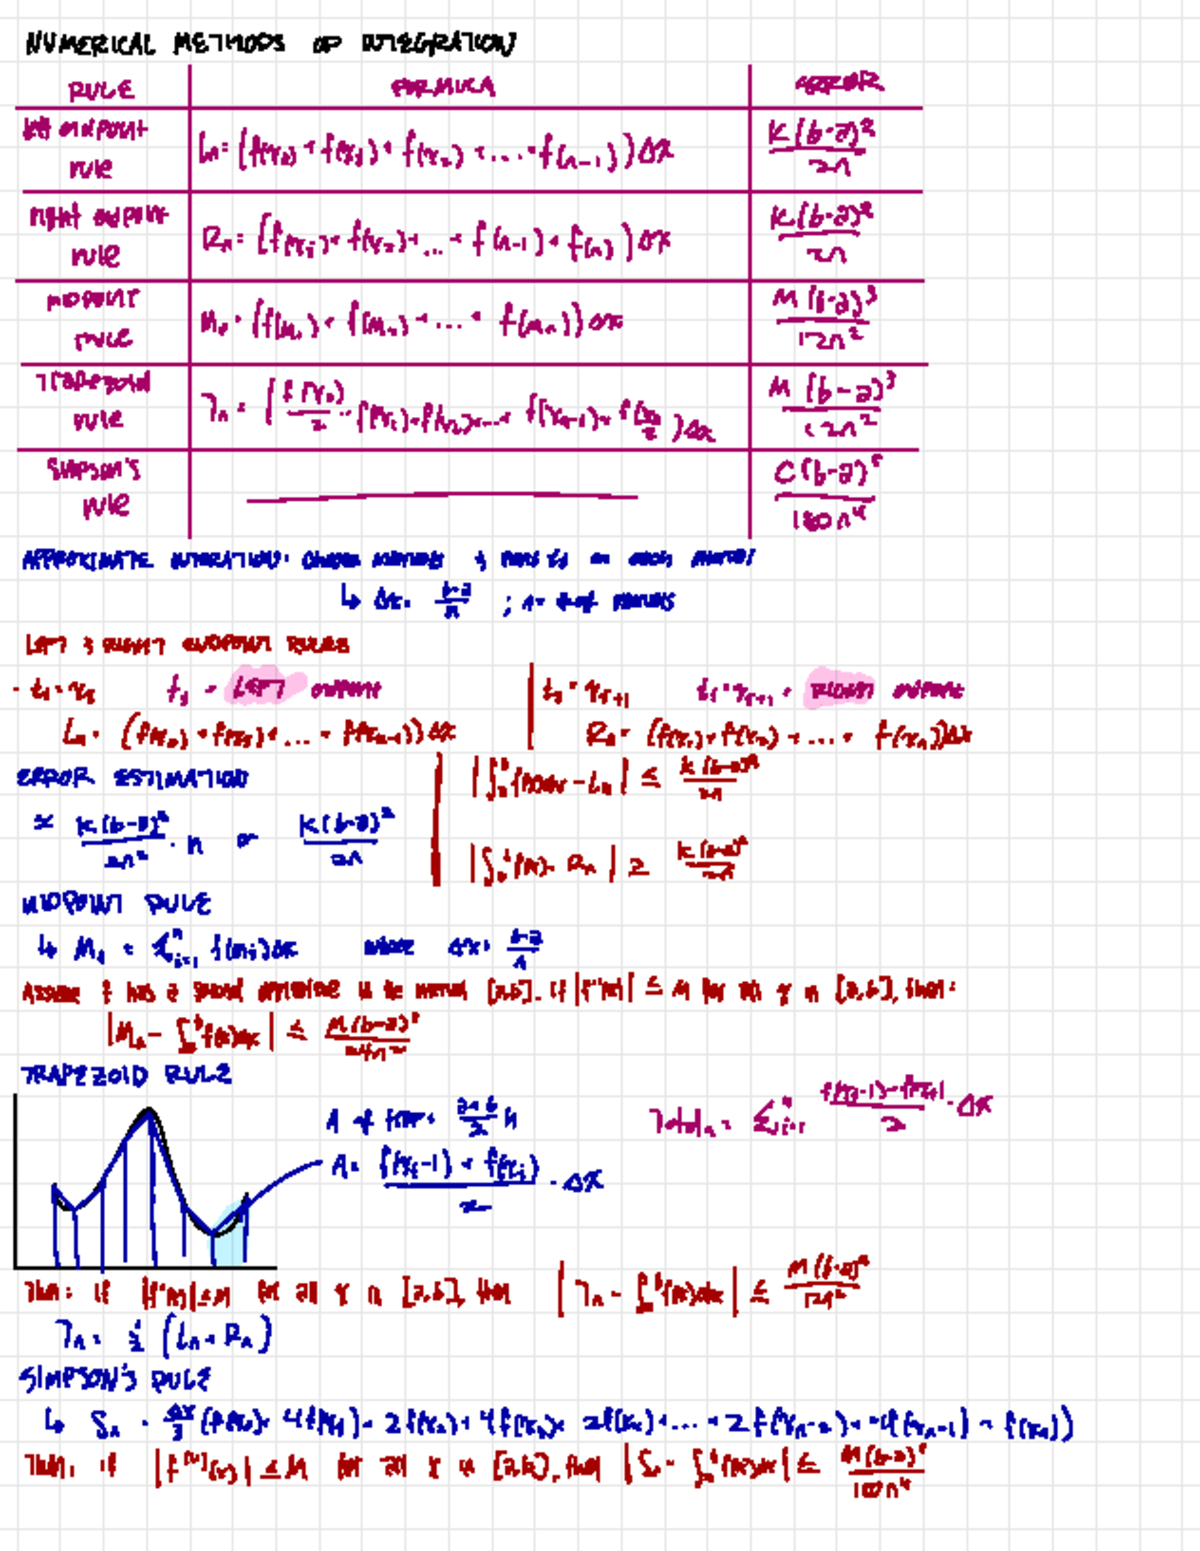 NUMERICAL METHODS OF INTEGRATION
RULE FORMULA ERROR
left endpoint rule Ln = (f(x₀) + f(x₁) + f(x₂) + .... + f(n-1))Δx K(b-a)²/2n
right endpoint rule Rn = (f(x₁) + f(x₂) + ... + f(n-1) + f(n))Δx K(b-a)²/2n
MIDPOINT RULE Mn = (f(m₁) + f(m₂) + ... + f(mn))Δx M(b-a)³/12n²
Trapezoid rule Tn = (f(x₀)/2 + f(x₁) + f(x₂) + ... + f(xn-1) + f(xn)/2)Δx M(b-a)³/12n²
Simpson's rule C(b-a)⁵/180n⁴
APPROXIMATE INTEGRATION: on each
↳ Δx = b-a/n ; n = # of
LEFT & RIGHT ENDPOINT RULES
LEFT endpoint RIGHT endpoint
Ln = (f(x₀) + f(x₁) + ... + f(xn-1))Δx Rn = (f(x₁) + f(x₂) + ... + f(xn))Δx
ERROR ESTIMATION |∫ f(x)dx - Ln| ≤ K(b-a)²/2n
≈ K(b-a)²/2n² · n or K(b-a)²/2n |∫ f(x) - Rn| ≥ K(b-a)²/2n
MIDPOINT RULE
↳ Mn = Σⁿi=1 f(mi)Δx where Δx = b-a/n
Assume f has a second derivative in the interval [a,b]. if |f"(x)| ≤ M for all x in [a,b], then:
|Mn - ∫ f(x)dx| ≤ M(b-a)³/24n²
TRAPEZOID RULE
A of trap = a+b/2 h Total n = Σⁿi=1 f(xi-1) + f(xi)/2 · Δx
A = f(xi-1) + f(xi)/2 · Δx
Then: if |f"(x)| ≤ M for all x in [a,b], then |Tn - ∫ f(x)dx| ≤ M(b-a)³/12n²
Tn = ½ (Ln + Rn)
SIMPSON'S RULE
↳ Sn = Δx/3 (f(x₀) + 4f(x₁) + 2f(x₂) + 4f(x₃) + 2f(x₄) + ... + 2f(xn-2) + 4f(xn-1) + f(xn))
Then: if |f⁽⁴⁾(x)| ≤ M for all x in [a,b], then |Sn - ∫ f(x)dx| ≤ M(b-a)⁵/180n⁴